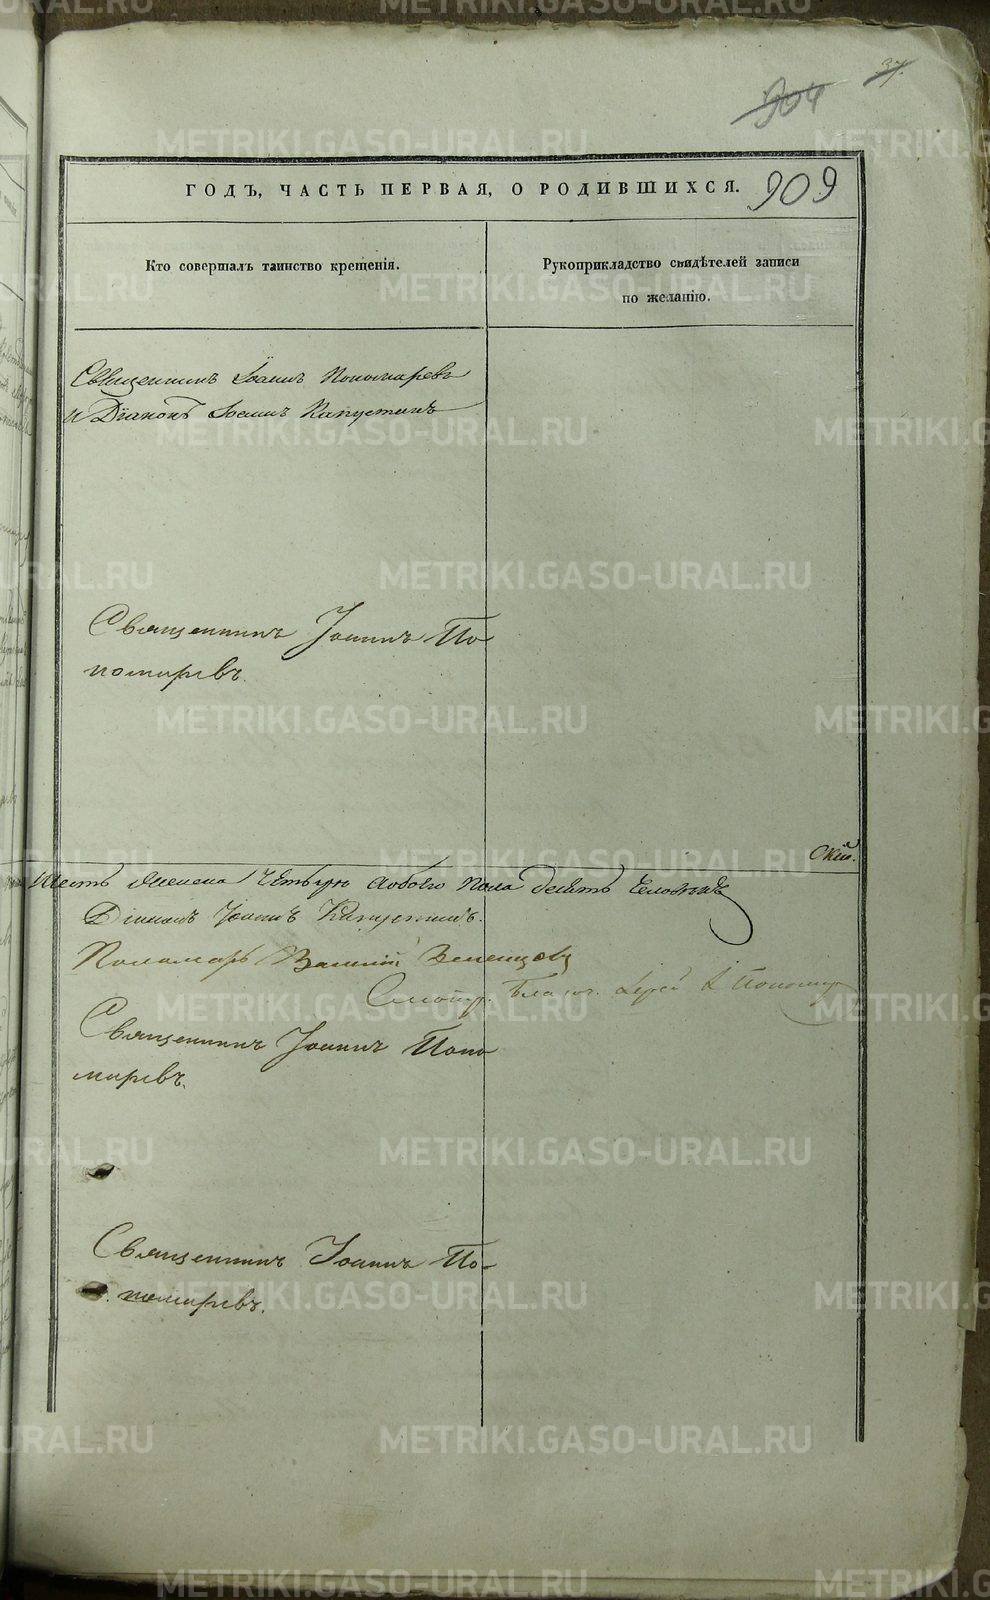 37.
904
ГОДЪ, ЧАСТЬ ПЕРВАЯ, О РОДИВШИХСЯ. 909
Кто совершалъ таинство крещенія.
Рукоприкладство свидѣтелей записи
по желанію.
Священникъ Іоаннъ Пономаревъ
и Діаконъ Іоаннъ Капустинъ
Священникъ Іоаннъ По-
номаревъ.
скаго.
Шесть женска четыре обоего пола десять человѣкъ
Діаконъ Іоаннъ Капустинъ.
Пономарь Василий
Священникъ Іоаннъ Поно-
маревъ.
Священникъ Іоаннъ По-
номаревъ.
METRIKI.GASO-URAL.RU